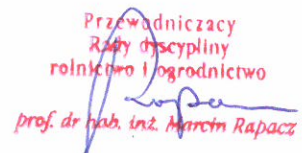 Przewodniczący
Rady dyscypliny
rolnictwo i ogrodnictwo
prof. dr hab. inż. Marcin Rapacz